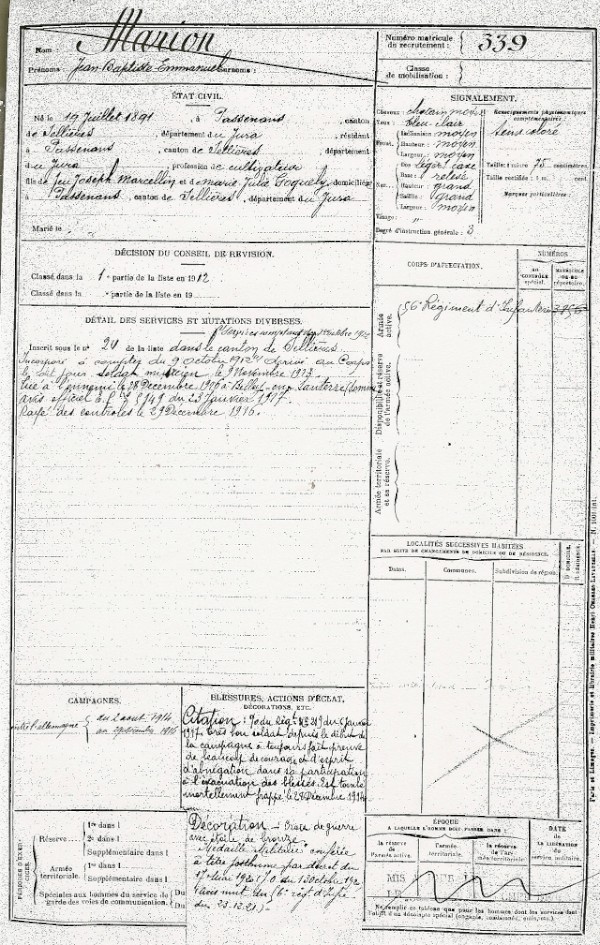 Nom : Marion
Prénoms : Jean Baptiste Emmanuel surnoms :
Numéro matricule du recrutement : 339
Classe de mobilisation :
ÉTAT CIVIL.
Né le 19 Juillet 1891, à Passenans, canton
de Sellières, département du Jura, résidant
à Passenans, canton de Sellières, département
du Jura, profession de cultivateur
fils de feu Joseph Marcellin et de Marie Julie Goguely, domiciliés
à Passenans, canton de Sellières, département du Jura
Marié le
SIGNALEMENT.
Cheveux : chatain moy.
Yeux : bleu clair
Front. Inclinaison : moyen
Hauteur : moyen
Largeur : moyen
Nez. Dos : léger cave
Base : relevé
Hauteur : grand
Saillie : grand
Largeur : moyen
Visage : "
Renseignements physionomiques complémentaires :
sens coloré
Taille : 1 mètre 75 centimètres.
Taille rectifiée : 1 m. cent.
Marques particulières :
Degré d'instruction générale : 3
DÉCISION DU CONSEIL DE REVISION.
Classé dans la 1e partie de la liste en 1912
Classé dans la e partie de la liste en 19
CORPS D'AFFECTATION.
NUMÉROS
AU CONTRÔLE spécial.
MATRICULE OU DU répertoire.
Armée active.
56e Régiment d'Infanterie 3956
Disponibilité et réserve de l'armée active.
Armée territoriale et sa réserve.
DÉTAIL DES SERVICES ET MUTATIONS DIVERSES.
Inscrit sous le n° 24 de la liste dans le canton de Sellières.
Incorporé à compter du 9 Octobre 1912 Arrivé au Corps
le dit jour soldat musicien le 9 Novembre 1913
Tué à l'ennemi le 28 Décembre 1916 à Belloy-en-Santerre (Somme
avis officiel 149 du 23 Janvier 1917
Rayé des contrôles le 29 Décembre 1916.
LOCALITÉS SUCCESSIVES HABITÉES
PAR SUITE DE CHANGEMENTS DE DOMICILE OU DE RÉSIDENCE.
Dates.
Communes.
Subdivision de région.
D. DOMICILE.
R. RÉSIDENCE.
CAMPAGNES.
contre l'allemagne
du 2 aout 1914
au 28 décembre 1916
BLESSURES, ACTIONS D'ÉCLAT,
DÉCORATIONS, ETC.
Citation : du Rég. N° 219 du Janvier
1917. Très bon soldat depuis le début de
la campagne a toujours fait preuve
de beaucoup de courage et d'esprit
d'abnégation dans sa participation
à l'évacuation des blessés. Est tombé
mortellement frappé le 28 Décembre 1916
Décoration - Croix de guerre
avec étoile de bronze
Médaille Militaire conférée
à titre posthume par décret du
J.O. du 13 octobre 192
du 23.12.21
PÉRIODES D'EXERCICES.
Réserve
1re dans l
2e dans l
Supplémentaire dans l
Armée territoriale.
1re dans l
Supplémentaire dans l
Spéciales aux hommes du service de garde des voies de communication. Du Du
ÉPOQUE
À LAQUELLE L'HOMME DOIT PASSER DANS :
la réserve de l'armée active.
l'armée territoriale.
la réserve de l'armée territoriale.
DATE
DE LA LIBÉRATION DU service militaire.
Paris et Limoges. — Imprimerie et librairie militaires Henri Charles-Lavauzelle.